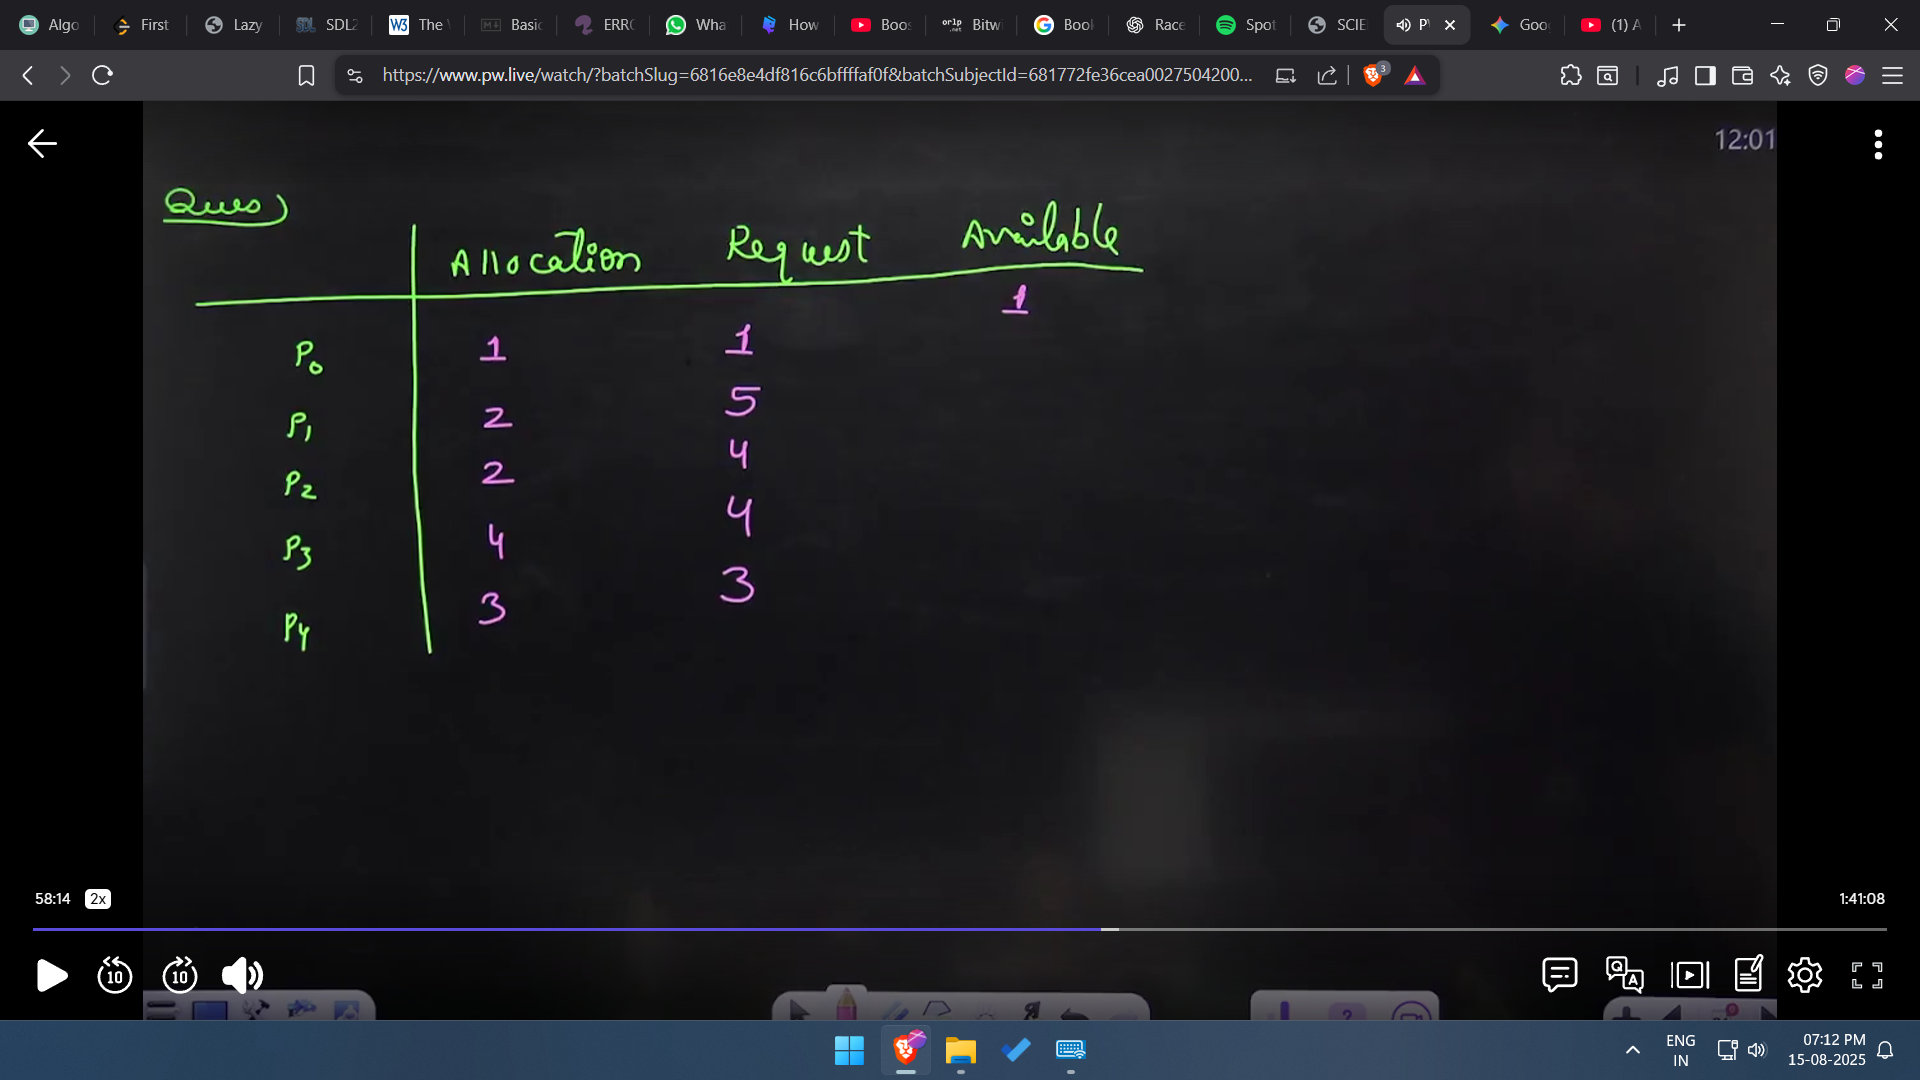 Algo First Lazy SDL2 The Basic ERRO Wha How Boos Bitwi Bool Race Spot SCIE P Goo (1) A
https://www.pw.live/watch/?batchSlug=6816e8e4df816c6bffffaf0f&batchSubjectId=681772fe36cea0027504200... 3
12:01
Ques)
Allocation Request Available
1
P0 1 1
P1 2 5
P2 2 4
P3 4 4
P4 3 3
58:14 2x 1:41:08
10 10
ENG 07:12 PM
IN 15-08-2025